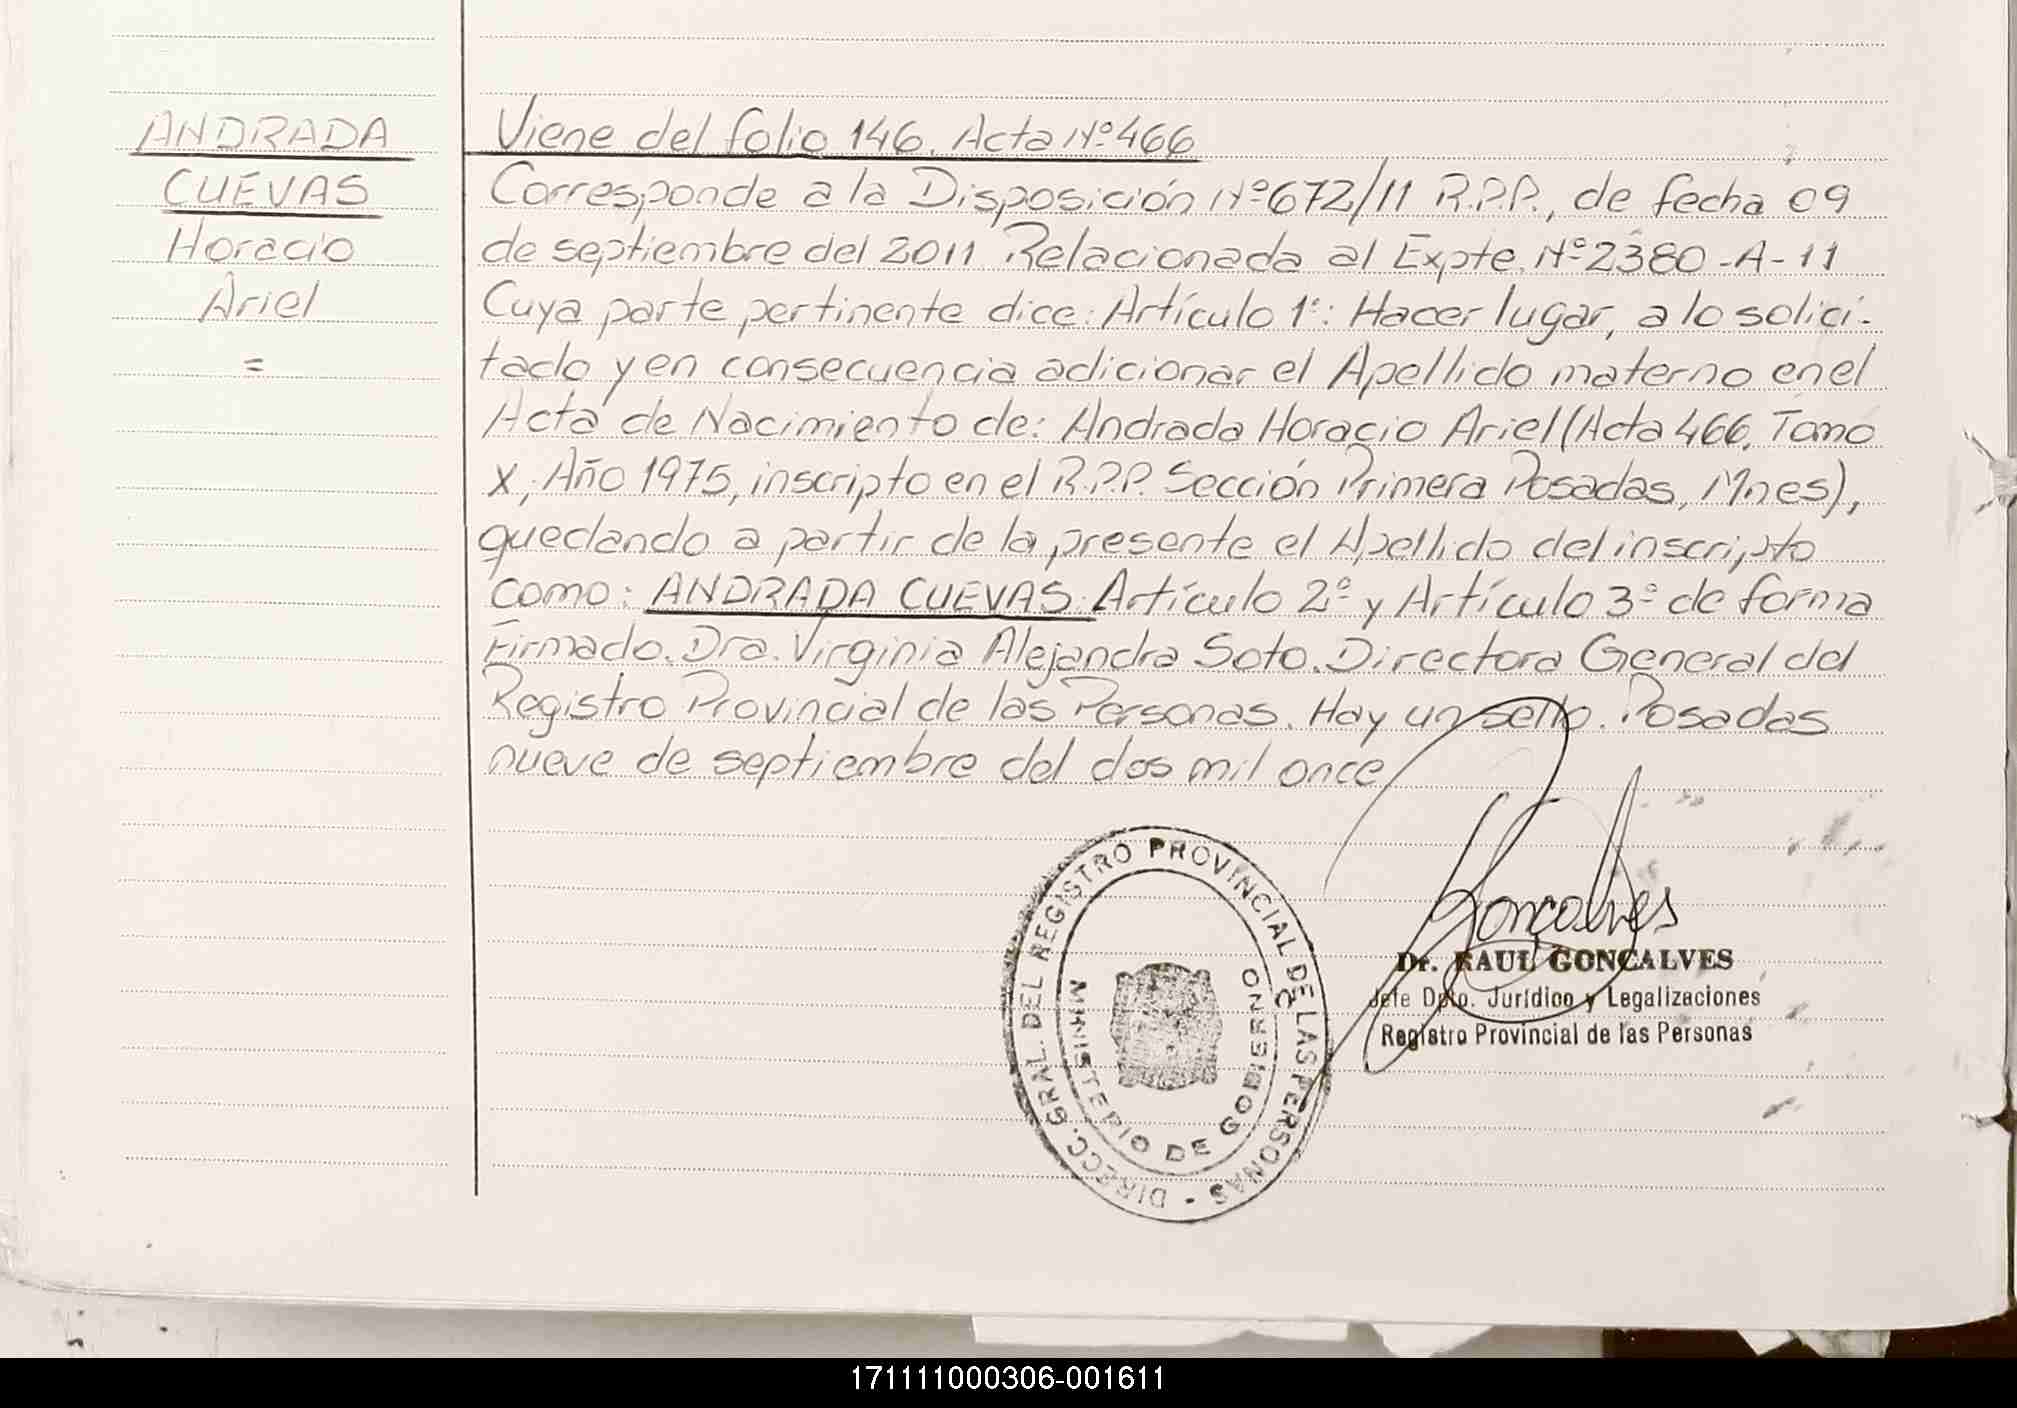 ANDRADA
CUEVAS
Horacio
Ariel
=
Viene del folio 146. Acta Nº 466
Corresponde a la Disposición Nº 672/11 R.P.P., de fecha 09
de septiembre del 2011 Relacionada al Expte. Nº 2380-A-11
Cuya parte pertinente dice: Artículo 1º: Hacer lugar, a lo solici-
tado y en consecuencia adicionar el Apellido materno en el
Acta de Nacimiento de: Andrada Horacio Ariel (Acta 466, Tomo
X, Año 1975, inscripto en el R.P.P. Sección Primera Posadas, Mnes),
quedando a partir de la presente el Apellido del inscripto
como: ANDRADA CUEVAS. Artículo 2º y Artículo 3º de forma
Firmado. Dra. Virginia Alejandra Soto. Directora General del
Registro Provincial de las Personas. Hay un sello. Posadas
nueve de septiembre del dos mil once
Goncalves
Dr. RAUL GONCALVES
Jefe Dpto. Jurídico y Legalizaciones
Registro Provincial de las Personas
DIRECC. GRAL. DEL REGISTRO PROVINCIAL DE LAS PERSONAS -
MINISTERIO DE GOBIERNO
171111000306-001611